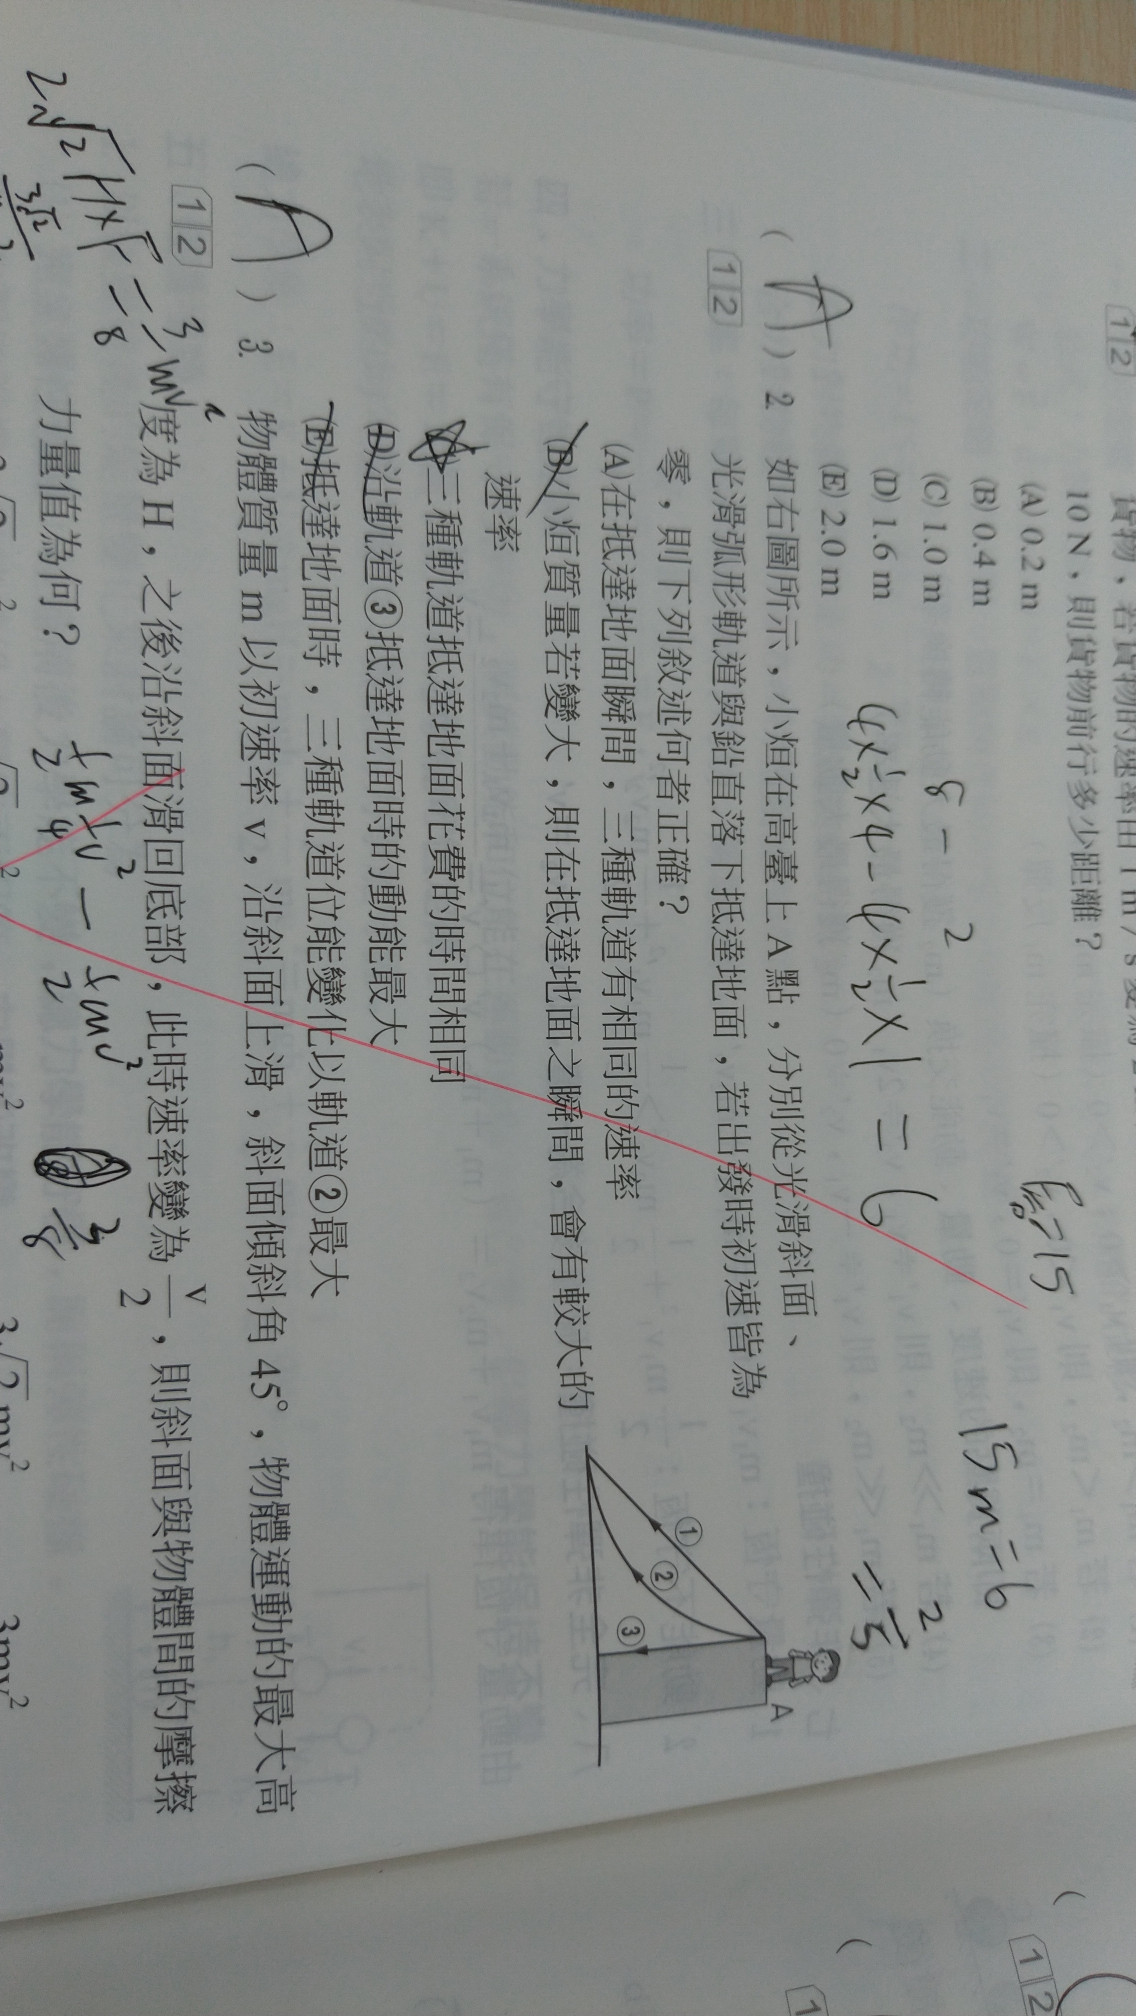 10 N，則貨物前行多少距離？
(A) 0.2 m
(B) 0.4 m
(C) 1.0 m
(D) 1.6 m
(E) 2.0 m
8 - 2
4×½×4-4×½×1 = 6
=15
15 m = 6
= 2/5
( A ) 2. 如右圖所示，小烜在高臺上 A 點，分別從光滑斜面、
1 2 光滑弧形軌道與鉛直落下抵達地面，若出發時初速皆為
零，則下列敘述何者正確？
(A)在抵達地面瞬間，三種軌道有相同的速率
(B)小烜質量若變大，則在抵達地面之瞬間，會有較大的
速率
三種軌道抵達地面花費的時間相同
(D)沿軌道③抵達地面時的動能最大
(E)抵達地面時，三種軌道位能變化以軌道②最大
① ② ③ A
( A ) 3. 物體質量 m 以初速率 v，沿斜面上滑，斜面傾斜角 45°，物體運動的最大高
1 2 度為 H，之後沿斜面滑回底部，此時速率變為 v/2，則斜面與物體間的摩擦
力量值為何？
2√2 H×f = 3/8 mv²
½m¼v² - ½mv² 3/8